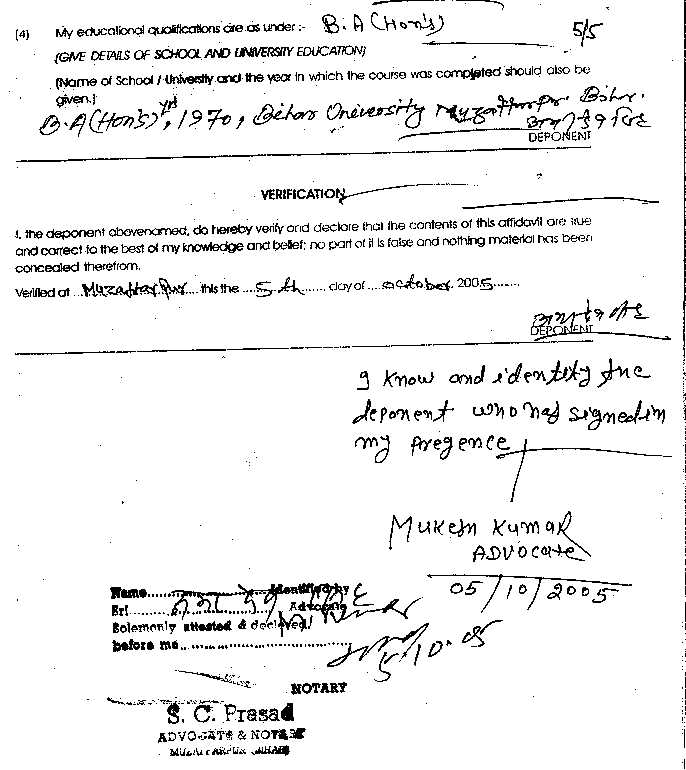 (4) My educational qualifications are as under :- B.A (Hon's) 5/5
(GIVE DETAILS OF SCHOOL AND UNIVERSITY EDUCATION)
(Name of School / University and the year in which the course was completed should also be
given.)
B.A (Hon's), 1970, Bihar University Muzaffarpur. Bihar.
DEPONENT
VERIFICATION
I, the deponent abovenamed, do hereby verify and declare that the contents of this affidavit are true
and correct to the best of my knowledge and belief; no part of it is false and nothing material has been
concealed therefrom.
Verified at ...Muzaffarpur... this the ....5th...... day of ...october. 2005......
DEPONENT
I know and identity the
deponent who has signed in
my presence
Mukesh Kumar
ADVOCATE
05/10/2005
Name.................. Identified by
Sri .................. Advocate
Solemonly attested & declared
before me..............................
5.10.05
NOTARY
S. C. Prasad
ADVOCATE & NOTARY